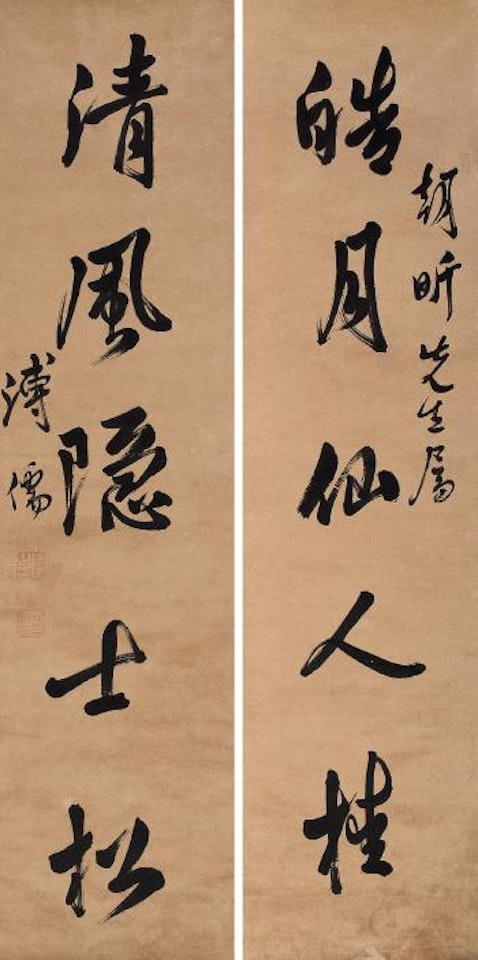 皓月仙人桂
朝昕先生属
清風隐士松
溥儒